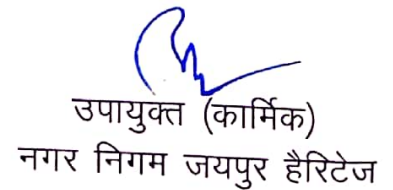 उपायुक्त (कार्मिक)
नगर निगम जयपुर हैरिटेज